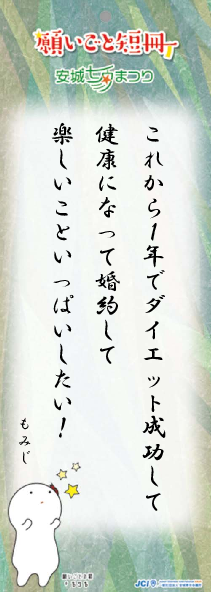 願いごと短冊
安城七夕まつり
これから1年でダイエット成功して
健康になって婚約して
楽しいこといっぱいしたい！
もみじ
JCI